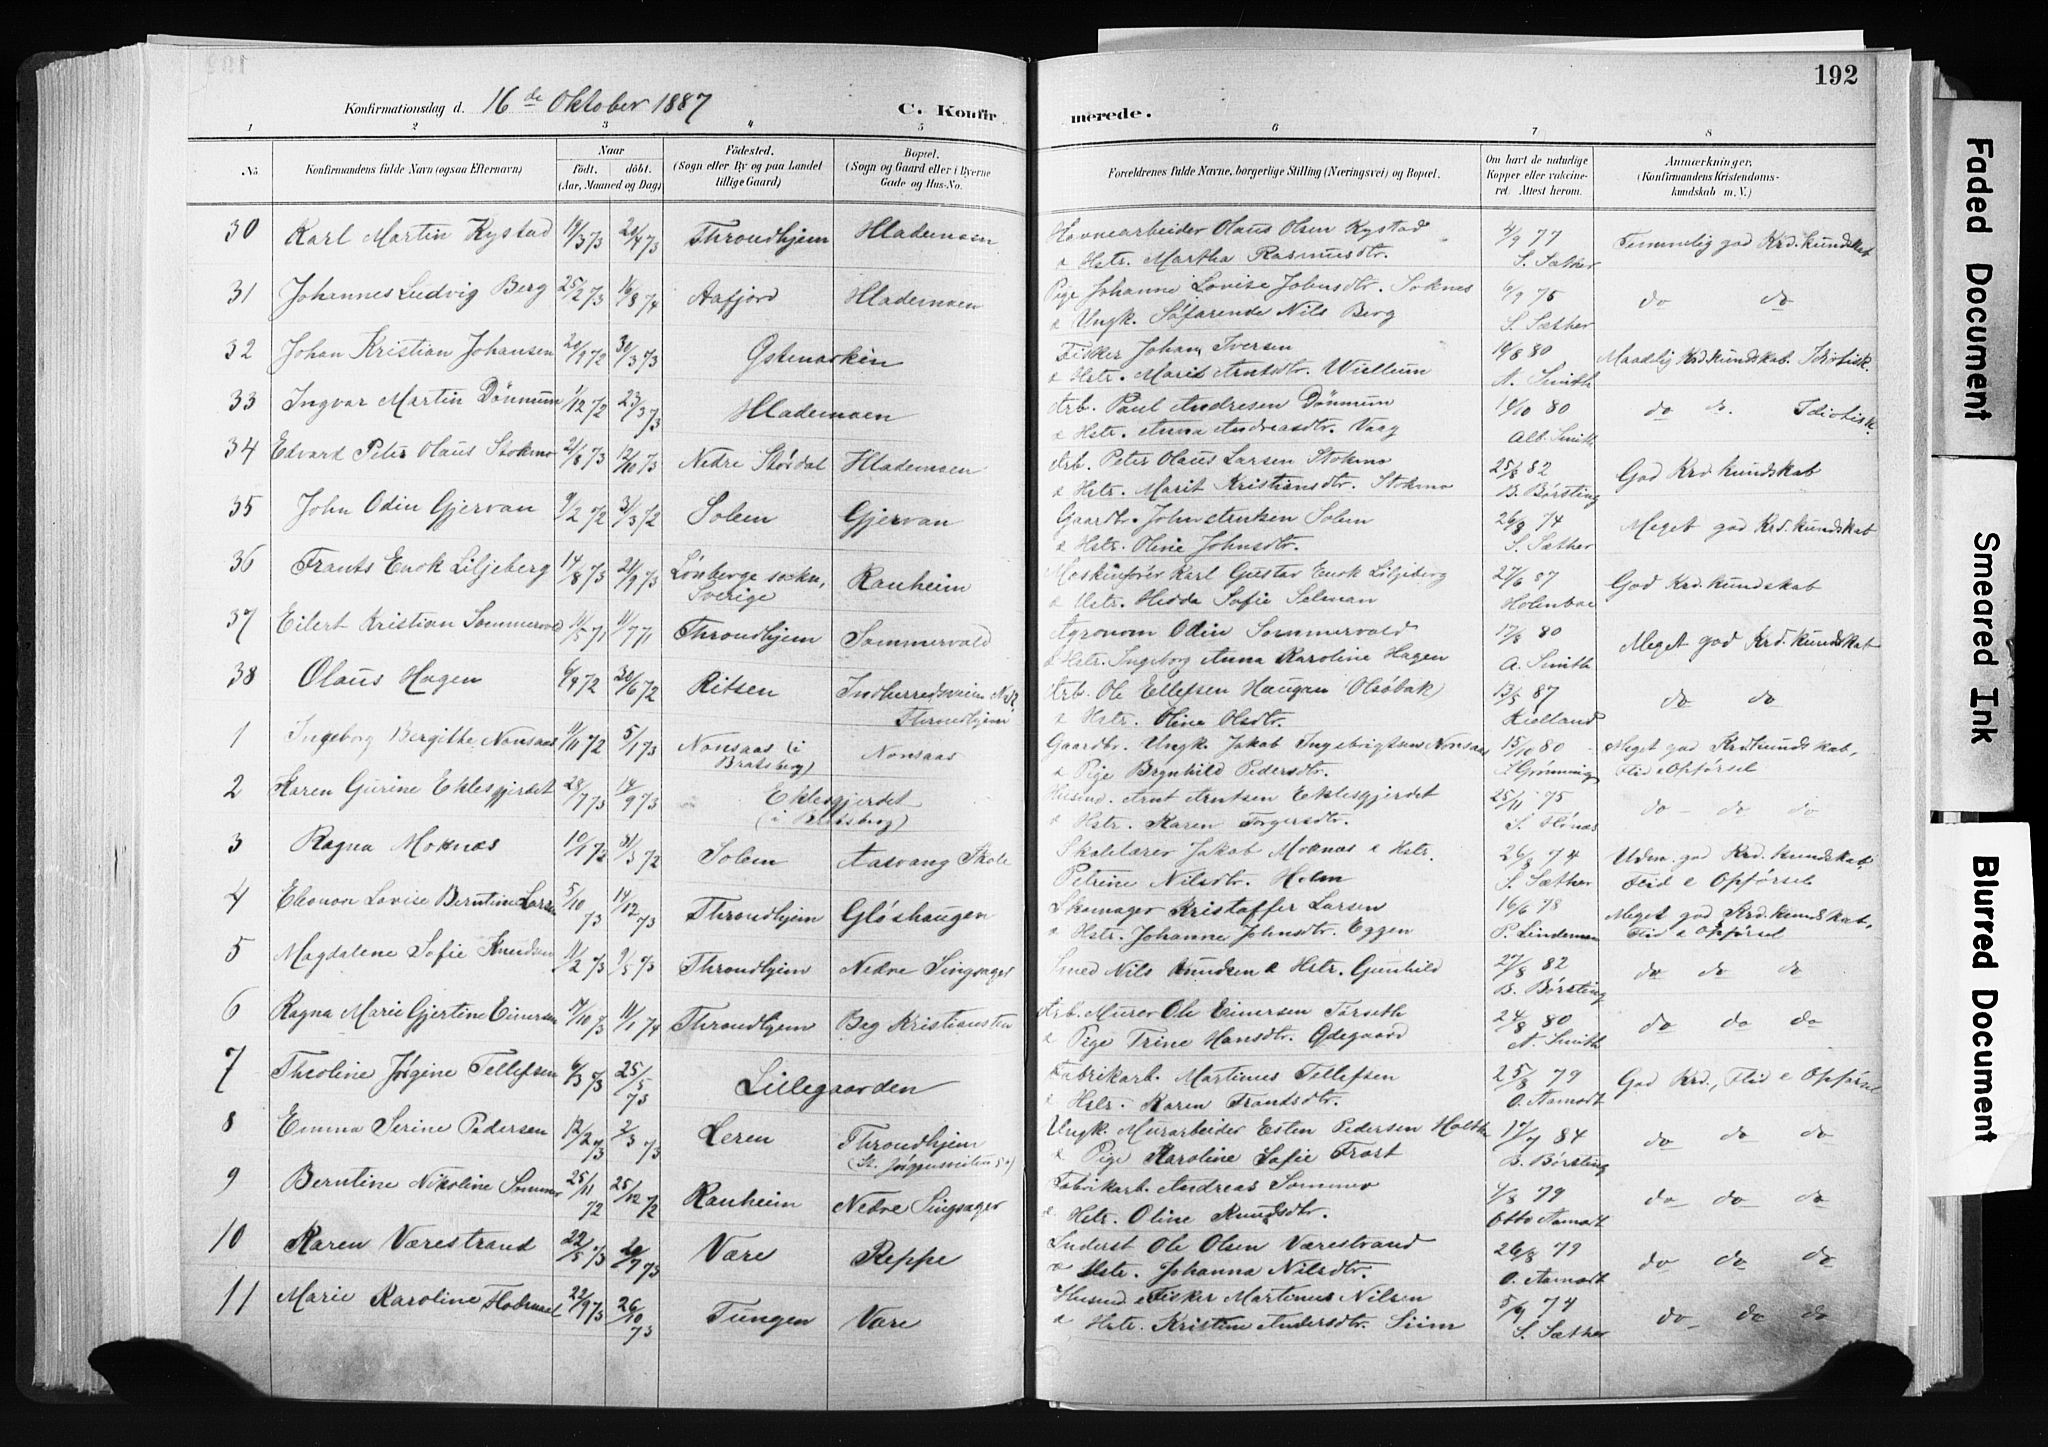 192
Konfirmationsdag d. 16de Oktober 1887 C. Konfirmerede.
1 2 3 4 5 6 7 8
No. Konfirmandens fulde Navn (ogsaa Efternavn) Naar født. døbt. (Aar, Maaned og Dag) Fødested. (Sogn eller By og paa Landet tillige Gaard) Bopæl. (Sogn og Gaard eller i Byerne Gade og Hus-No. Forældrenes fulde Navne, borgerlige Stilling (Næringsvei) og Bopæl. Om havt de naturlige Kopper eller vaccineret. Attest herom. Anmærkninger. (Konfirmandens Kristendomskundskab m. V.)
30 Karl Martin Rystad 19/3 73 20/4 73 Throndhjem Hlademoen Havnearbeider Olaus Olsen Rystad 4/9 77 Temmelig god Krd.kundskab
& Hstr. Martha Rasmusdtr. S. Sæther
31 Johannes Ludvig Berg 25/2 73 16/8 74 Aafjord Hlademoen Pige Johanne Lovise Johnsdtr. Soknes 6/9 75 do do
& Ungk. Søfarende Nils Berg S. Sæther
32 Johan Kristian Johansen 20/9 72 30/3 73 Østmarken Fisker Johan Iversen 19/8 80 Maadelig Krd.kundskab. Idiotisk.
& Hstr. Marit Arntsdtr. Wullum A. Smith
33 Ingvar Martin Dönnum 1/12 72 23/3 73 Hlademoen Arb. Paul Andresen Dönnum 14/10 80 do do. Idiotisk.
& Hstr. Anna Andreasdtr. Vaag Alb. Smith
34 Edvard Peter Olaus Stokmo 21/8 73 12/10 73 Nedre Størdal Hlademoen Arb. Peter Olaus Larsen Stokmo 25/8 82 God Krd.kundskab
& Hstr. Marit Kristiansdtr. Stokmo B. Børsting
35 John Odin Gjervan 9/2 72 31/3 72 Solem Gjervan Gaardbr. John Arntsen Solem 26/8 74 Meget god Krd.kundskab
& Hstr. Oline Johnsdtr. S. Sæther
36 Frants Enok Liljeberg 14/8 73 21/9 73 Lönberge sockn, Sverige Ranheim Maskinfører Karl Gustav Enok Liljeberg 27/6 87 God Krd.kundskab
& Hstr. Hedda Sofie Selman Holenboe
37 Eilert Kristian Sommervold 11/5 71 11/7 71 Throndhjem Sommervold Agronom Odin Sommervold 17/8 80 Meget god Krd.kundskab
& Hstr. Ingeborg Anna Karoline Hagen A. Smith
38 Olaus Hagen 6/4 72 30/6 72 Ritsen Indherredsveien Throndhjem Arb. Ole Ellefsen Haugan (Olsöbak) 13/5 87 do do
& Hstr. Oline Olsdtr. Kielland
1 Ingeborg Bergithe Nonsaas 11/10 72 5/1 73 Nonsaas (i Bratsberg) Nonsaas Gaardbr. Ungk. Jakob Ingebrigtsen Nonsaas 15/10 80 Meget god Krdkundskab,
& Pige Brynhild Pedersdtr. Grønning Flid & Opførsel
2 Karen Gurine Eklesgjerdet 28/7 73 14/9 73 Eklesgjerdet (i Bratsberg) Husmd. Arnt Arntsen Eklesgjerdet 25/11 75 do do do
& Hstr. Karen Torgersdtr. S. Hönæs
3 Ragna Moknæs 10/1 72 31/3 72 Solem Aasvang Skole Skolelærer Jakob Moknæs & Hstr. 26/8 74 Udm. god Krd.kundskab,
Petrine Nilsdtr. Holm S. Sæther Flid & Opførsel
4 Eleonore Lovise Berntine Larsen 5/10 73 14/12 73 Throndhjem Gløshaugen Skomager Kristoffer Larsen 16/6 78 Meget god Krd.kundskab,
& Hstr. Johanne Johnsdtr. Eggen P. Lindeman Flid & Opførsel
5 Magdalene Sofie Knudsen 11/2 73 9/5 73 Throndhjem Nedre Singsager Smed Nils Knudsen & Hstr. Gunhild 27/8 82 do do do
B. Børsting
6 Ragna Marie Gjertine Einersen 17/10 73 11/1 74 Throndhjem Bag Kristiansten Arb. Murer Ole Einersen Forseth 24/8 80 do do do
& Pige Trine Hansdtr. Ødegaard A. Smith
7 Theoline Jørgine Tellefsen 6/3 73 25/5 73 Lillegaarden Fabrikarb. Martinus Tellefsen 25/8 79 God Krd., Flid & Opførsel
& Hstr. Karen Frantsdtr. O. Aamodt
8 Emma Serine Pedersen 12/2 73 2/3 73 Leren Throndhjem Ungk. Murarbeider Esten Pedersen 17/7 84 do do do
& Pige Karoline Sofie Frost B. Børsting
9 Berntine Nikoline Sommer 25/11 72 25/12 72 Ranheim Nedre Singsager Fabrikarb. Andreas Sommer 4/8 79 do do do
& Hstr. Oline Knudsdtr. Otto Aamodt
10 Karen Værestrand 22/5 73 20/7 73 Være Reppe Inderst Ole Olsen Værestrand 26/8 79 do do do
& Hstr. Johanna Nilsdtr. O. Aamodt
11 Marie Karoline 22/9 73 26/10 73 Tungen Være Husmd & Fisker Martinus Nilsen 5/9 74 do do do
& Hstr. Kristine Andersdtr. Siim S. Sæther
Faded Document
Smeared Ink
Blurred Document